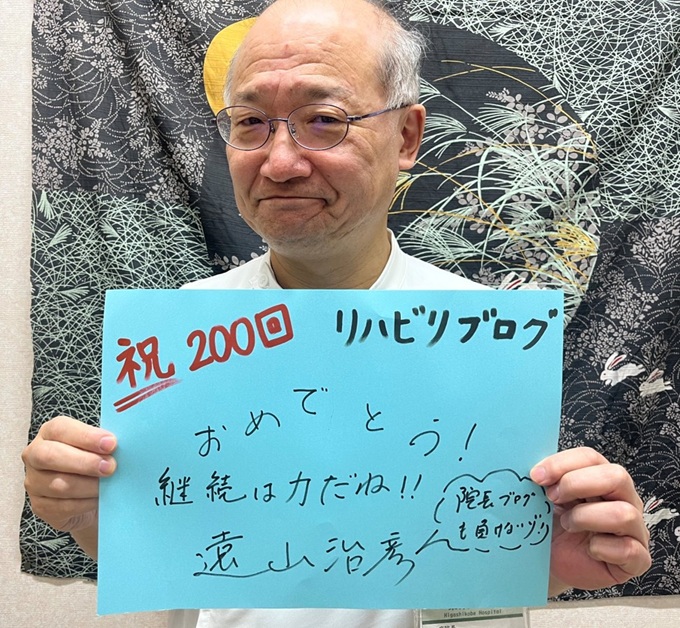 祝 200回 リハビリブログ
おめでとう!
継続は力だね!!
院長ブログ
も負けないゾ!
遠山治彦
Higashikubo Hospital